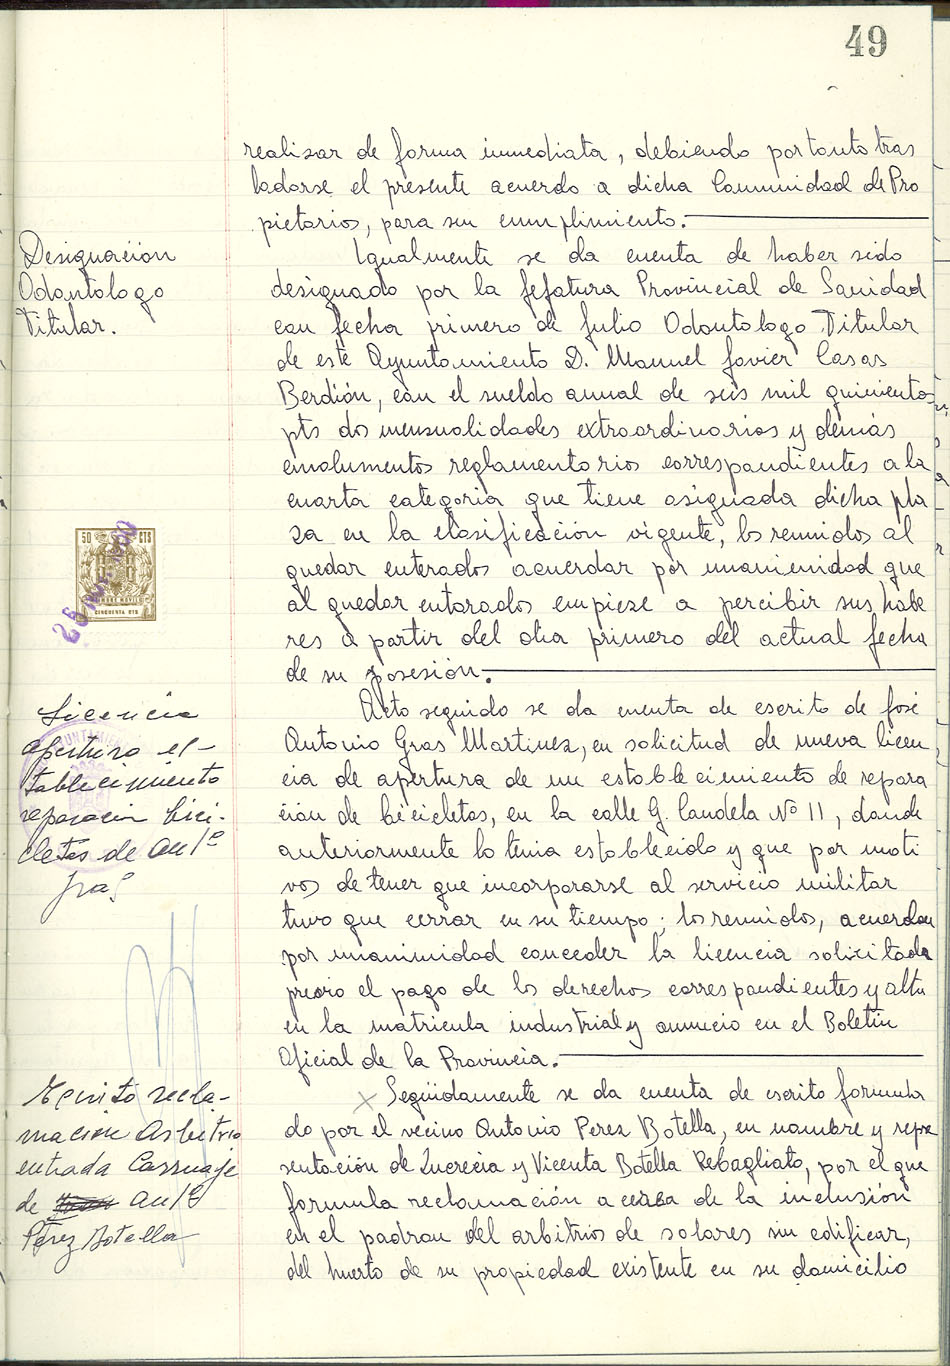 49
realizar de forma inmediata, debiendo por tanto tras
ladarse el presente acuerdo a dicha Comunidad de Pro
pietarios, para su cumplimiento.
Designación
Odontologo
Titular.
Igualmente se da cuenta de haber sido
designado por la Jefatura Provincial de Sanidad
con fecha primero de Julio Odontologo Titular
de este Ayuntamiento D. Manuel Javier Casas
Berdión, con el sueldo annual de seis mil quinientos
pts dos mensualidades extraordinarias y demás
emolumentos reglamentarios correspondientes a la
cuarta categoria que tiene asignada dicha pla
za en la clasificación vigente, los reunidos al
quedar enterados acuerdar por unanimidad que
al quedar entarados empieze a percibir sus habe
res a partir del dia primero del actual fecha
de su posesión.
50 CTS
TIMBRE MOVIL
CINCUENTA CTS
Licencia
apertura es-
tablecimiento
reparacion bici-
cletas de Anto
Gras
Acto seguido se da cuenta de escrito de José
Antonio Gras Martinez, en solicitud de nueva licen
cia de apertura de un establecimiento de repara
ción de bicicletas, en la calle G. Candela Nº 11, donde
anteriormente lo tenia establecido y que por moti
vos de tener que incorporarse al servicio militar
tuvo que cerrar en su tiempo; los reunidos, acuerdan
por unanimidad conceder la licencia solicitada
previo el pago de los derechos correspondientes y alta
en la matricula industrial y anuncio en el Boletin
Oficial de la Provincia.
Escrito recla-
macion Arbitrio
entrada Carruaje
de Anto
Pérez Botella
Següidamente se da cuenta de escrito formula
do por el vecino Antonio Perez Botella, en nombre y repre
sentación de Lucrecia y Vicenta Botella Rebagliato, por el que
formula reclamación acerca de la inclusión
en el padron del arbitrios de solares sin edificar,
del huerto de su propiedad existente en su domicilio